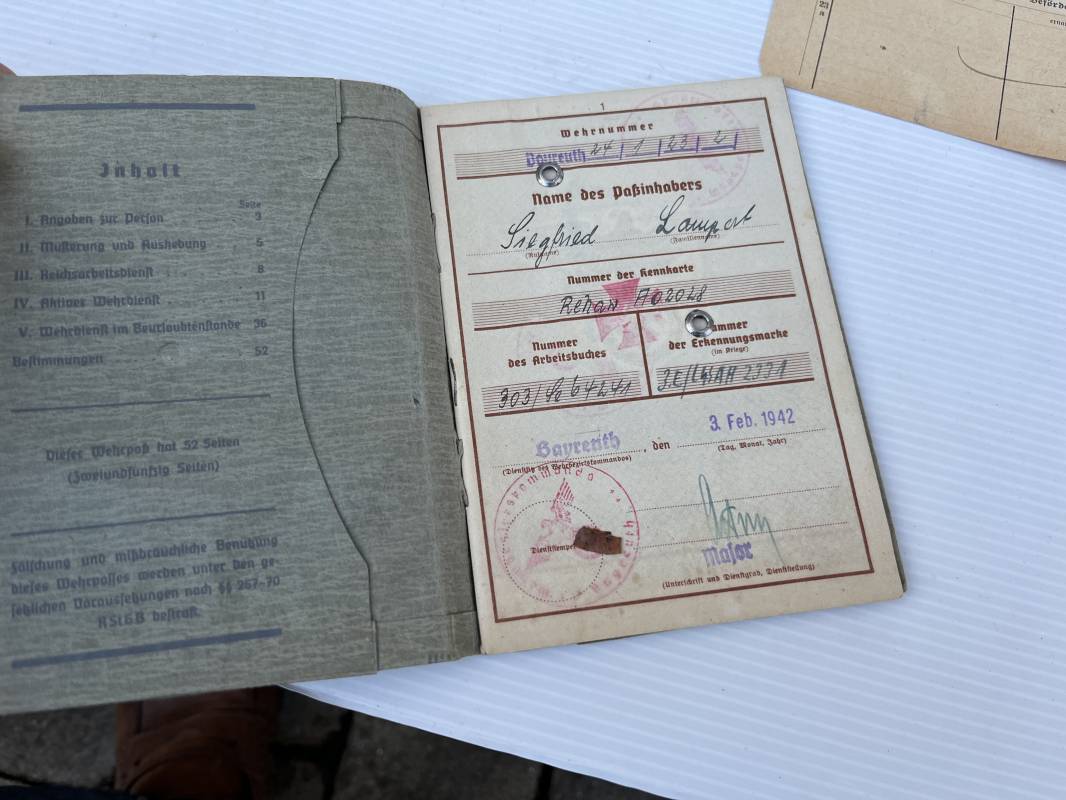 Inhalt
Seite
I. Angaben zur Person 3
II. Musterung und Aushebung 5
III. Reichsarbeitsdienst 8
IV. Aktiver Wehrdienst 11
V. Wehrdienst im Beurlaubtenstande 36
Bestimmungen 52
Dieser Wehrpaß hat 52 Seiten
(Zweiundfünfzig Seiten)
Fälschung und mißbräuchliche Benutzung
dieses Wehrpasses werden unter den ge-
setzlichen Voraussetzungen nach §§ 267-70
RStGB bestraft.
1
Wehrnummer
Bayreuth 24 | 1 | 23 | 2 |
Name des Paßinhabers
Siegfried Lampert
(Rufname) (Familienname)
Nummer der Kennkarte
Rehau A02028
Nummer
des Arbeitsbuches
303/
Nummer
der Erkennungsmarke
(im Kriege)
2331
Bayreuth, den 3. Feb. 1942
(Dienstsitz des Wehrbezirkskommandos) (Tag, Monat, Jahr)
Dienststempel
Major
(Unterschrift und Dienstgrad, Dienststellung)
23